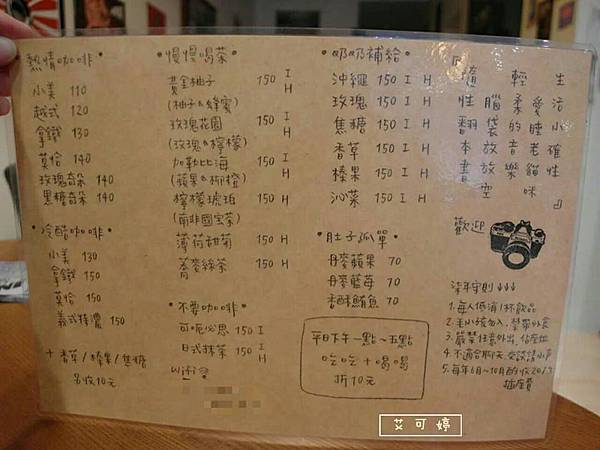 熱情咖啡•
小美 110
越式 120
拿鐵 130
莫恰 140
玫瑰奇朵 140
黑糖奇朵 140
•冷酷咖啡•
小美 130
拿鐵 150
莫恰 150
義式特濃 150
+ 香草/榛果/焦糖
另收10元
•慢慢喝茶•
黃金柚子 150 I H
(柚子&蜂蜜)
玫瑰花園 150 I H
(玫瑰&檸檬)
加勒比海 150 I H
(蘋果&柳橙)
檸檬琥珀 150 I H
(南非國宝茶)
薄荷甜菊 150 H
蕎麥綠茶 150 H
•不要咖啡•
可呃必思 150 I
日式抹茶 150 I H
Wifi
•奶奶補給•
沖繩 150 I H
玫瑰 150 I H
焦糖 150 I H
香草 150 I H
榛果 150 I H
沁菜 150 I H
•肚子孤單•
丹麥蘋果 70
丹麥藍莓 70
香酥鮪魚 70
平日下午一點~五點
吃吃+喝喝
折10元
『隨性翻本書
輕腦袋放放空
柔的音樂
愛睡老貓咪
生活小確性』
歡迎
柒年守則↓↓↓
1.每人低消1杯飲品
2.毛小孩勿入.禁帶外食
3.嚴禁任意外出.佔座位
4.不適合聊天.交談請小声
5.每年6月~10月酌收20/3
插座費
艾可婷